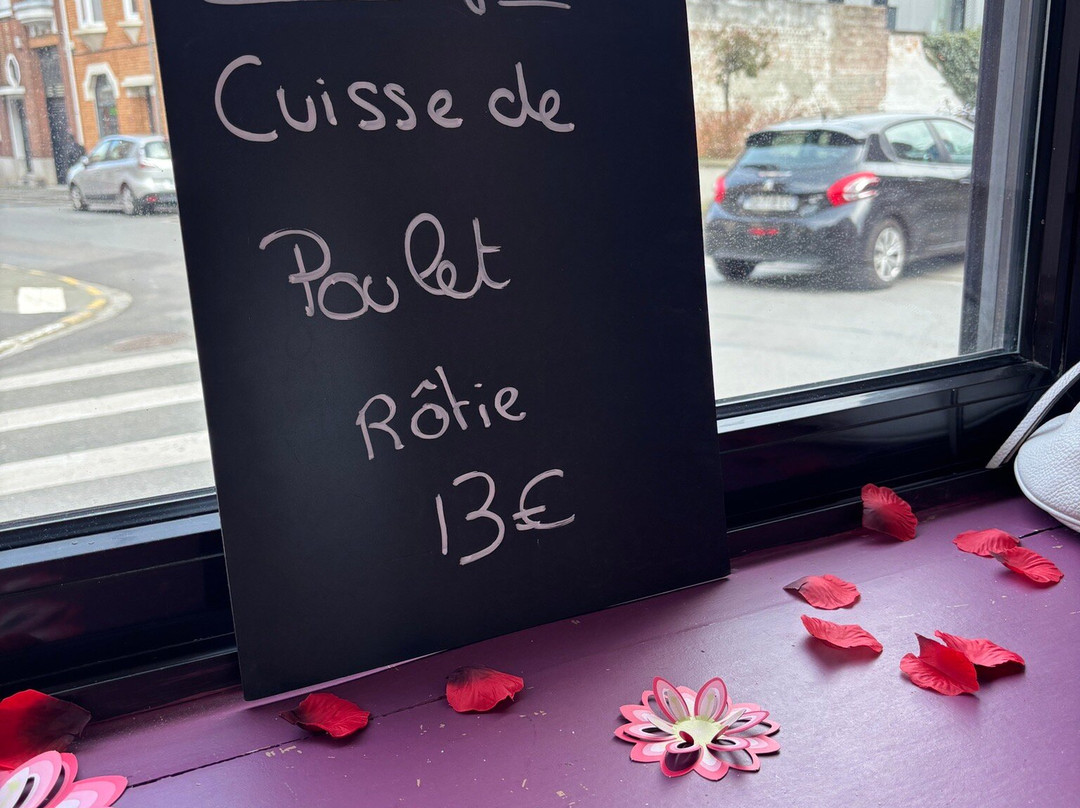 Cuisse de
Poulet
Rôtie
13€